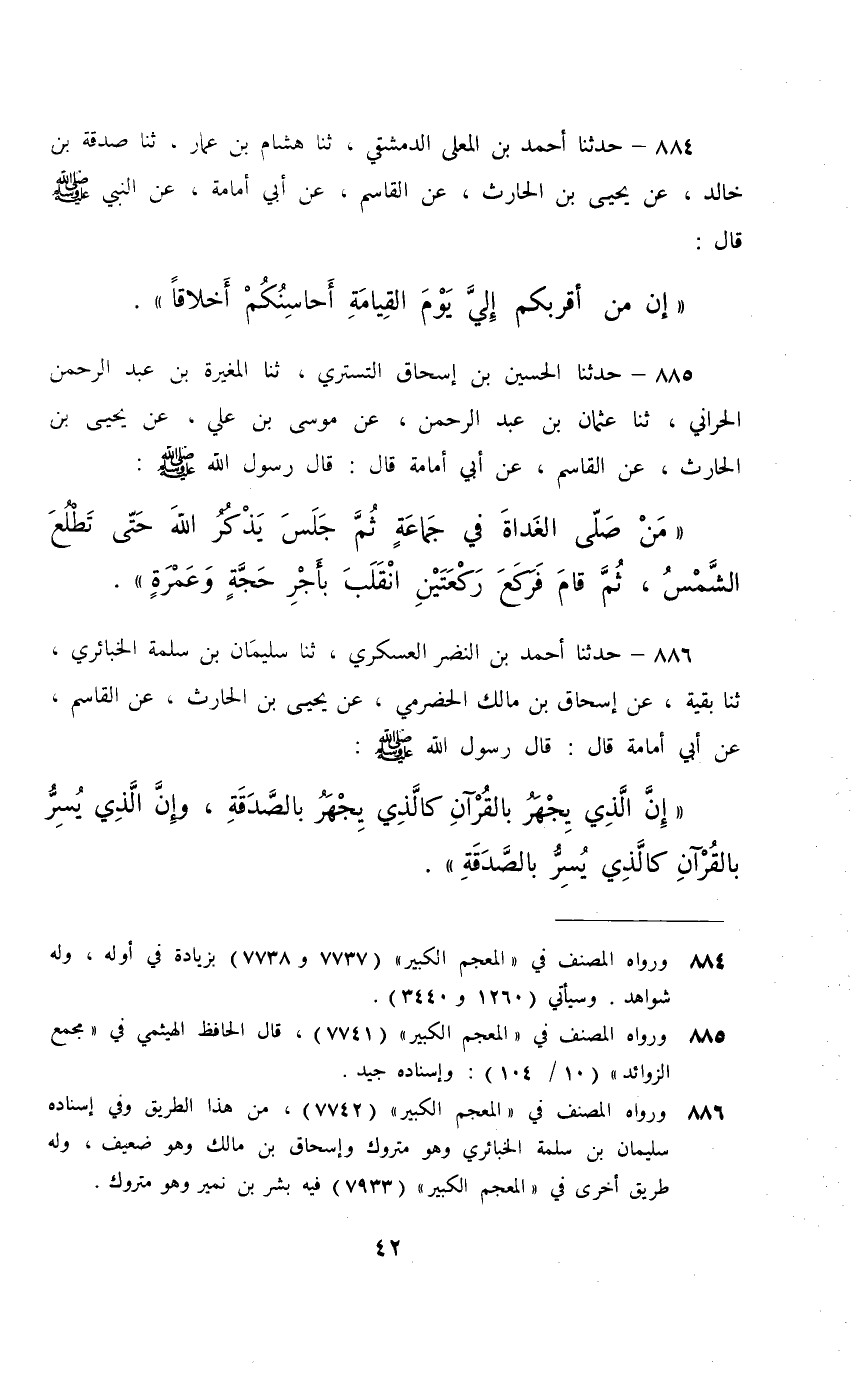 ٨٨٤ – حدثنا أحمد بن المعلى الدمشقي ، ثنا هشام بن عمار . ثنا صدقة بن
خالد ، عن يحيى بن الحارث ، عن القاسم ، عن أبي أمامة ، عن النبي ﷺ
قال :
« إن من أقربكم إِليَّ يَوْمَ القِيامَةِ أَحاسِنُكُمْ أَخلاقاً » .
٨٨٥ – حدثنا الحسين بن إسحاق التستري ، ثنا المغيرة بن عبد الرحمن
الحراني ، ثنا عثمان بن عبد الرحمن ، عن موسى بن علي . عن يحيى بن
الحارث ، عن القاسم ، عن أبي أمامة قال : قال رسول الله ﷺ :
« مَنْ صَلّى الغَداةَ في جَماعَةٍ ثُمَّ جَلَسَ يَذْكُرُ اللهَ حَتّى تَطْلُعَ
الشَّمْسُ ، ثُمَّ قامَ فَرَكَعَ رَكْعَتَيْنِ انْقَلَبَ بأَجْرِ حَجَّةٍ وَعَمْرَةٍ » .
٨٨٦ – حدثنا أحمد بن النضر العسكري ، ثنا سليمَان بن سلمة الخبائري ،
ثنا بقية ، عن إسحاق بن مالك الحضرمي ، عن يحيى بن الحارث ، عن القاسم ،
عن أبي أمامة قال : قال رسول الله ﷺ :
« إِنَّ الَّذِي يجْهَرُ بالقُرْآنِ كالَّذِي يجْهَرُ بالصَّدَقَةِ ، وإِنَّ الَّذِي يُسِرُّ
بالقُرْآنِ كالَّذِي يُسِرُّ بالصَّدَقَةِ » .
٨٨٤ ورواه المصنف في « المعجم الكبير » (٧٧٣٧ و ٧٧٣٨) بزيادة في أوله ، وله
شواهد . وسيأتي (١٢٦٠ و ٣٤٤٠) .
٨٨٥ ورواه المصنف في « المعجم الكبير » (٧٧٤١) ، قال الحافظ الهيثمي في « مجمع
الزوائد » (١٠/ ١٠٤) : وإسناده جيد .
٨٨٦ ورواه المصنف في « المعجم الكبير » (٧٧٤٢) ، من هذا الطريق وفي إسناده
سليمان بن سلمة الخبائري وهو متروك وإسحاق بن مالك وهو ضعيف ، وله
طريق أخرى في « المعجم الكبير » (٧٩٣٣) فيه بشر بن نمير وهو متروك .
٤٢